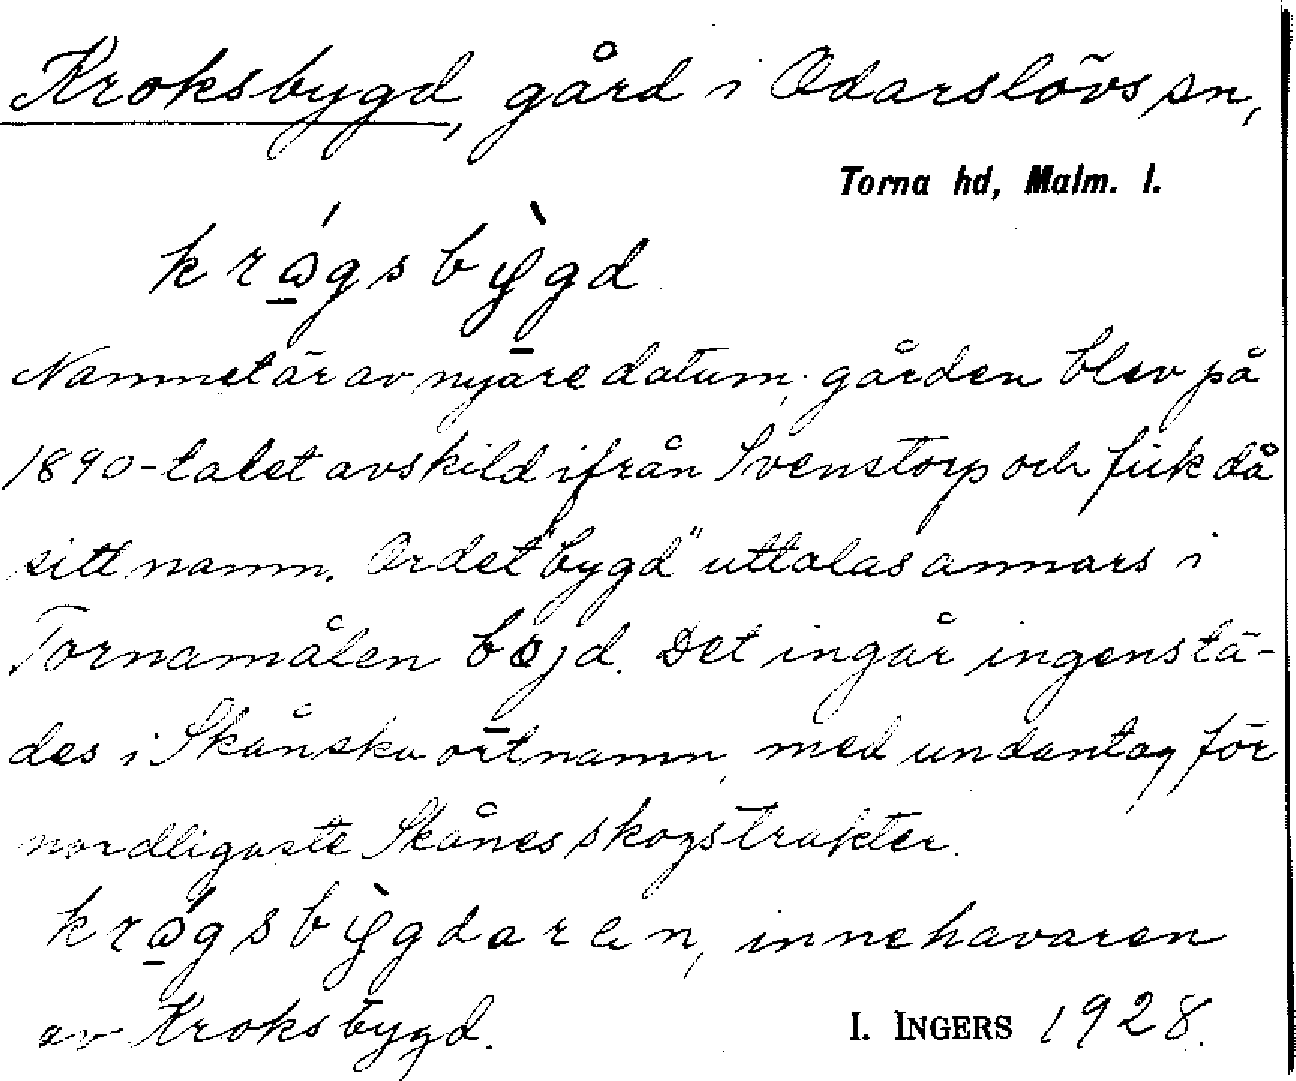 Kroksbygd, gård i Odarslövs sn,
Torna hd, Malm. l.
krǫ́gsbỳgd
Namnet är av nyare datum; gården blev på
1890-talet avskild ifrån Svenstorp och fick då
sitt namn. Ordet "bygd" uttalas annars i
Tornamålen bøjd. Det ingår ingenstä-
des i Skånska ortnamn, med undantag för
nordligaste Skånes skogstrakter.
krǫ́gsbỳgdaren, innehavaren
av Kroksbygd.
I. INGERS 1928.